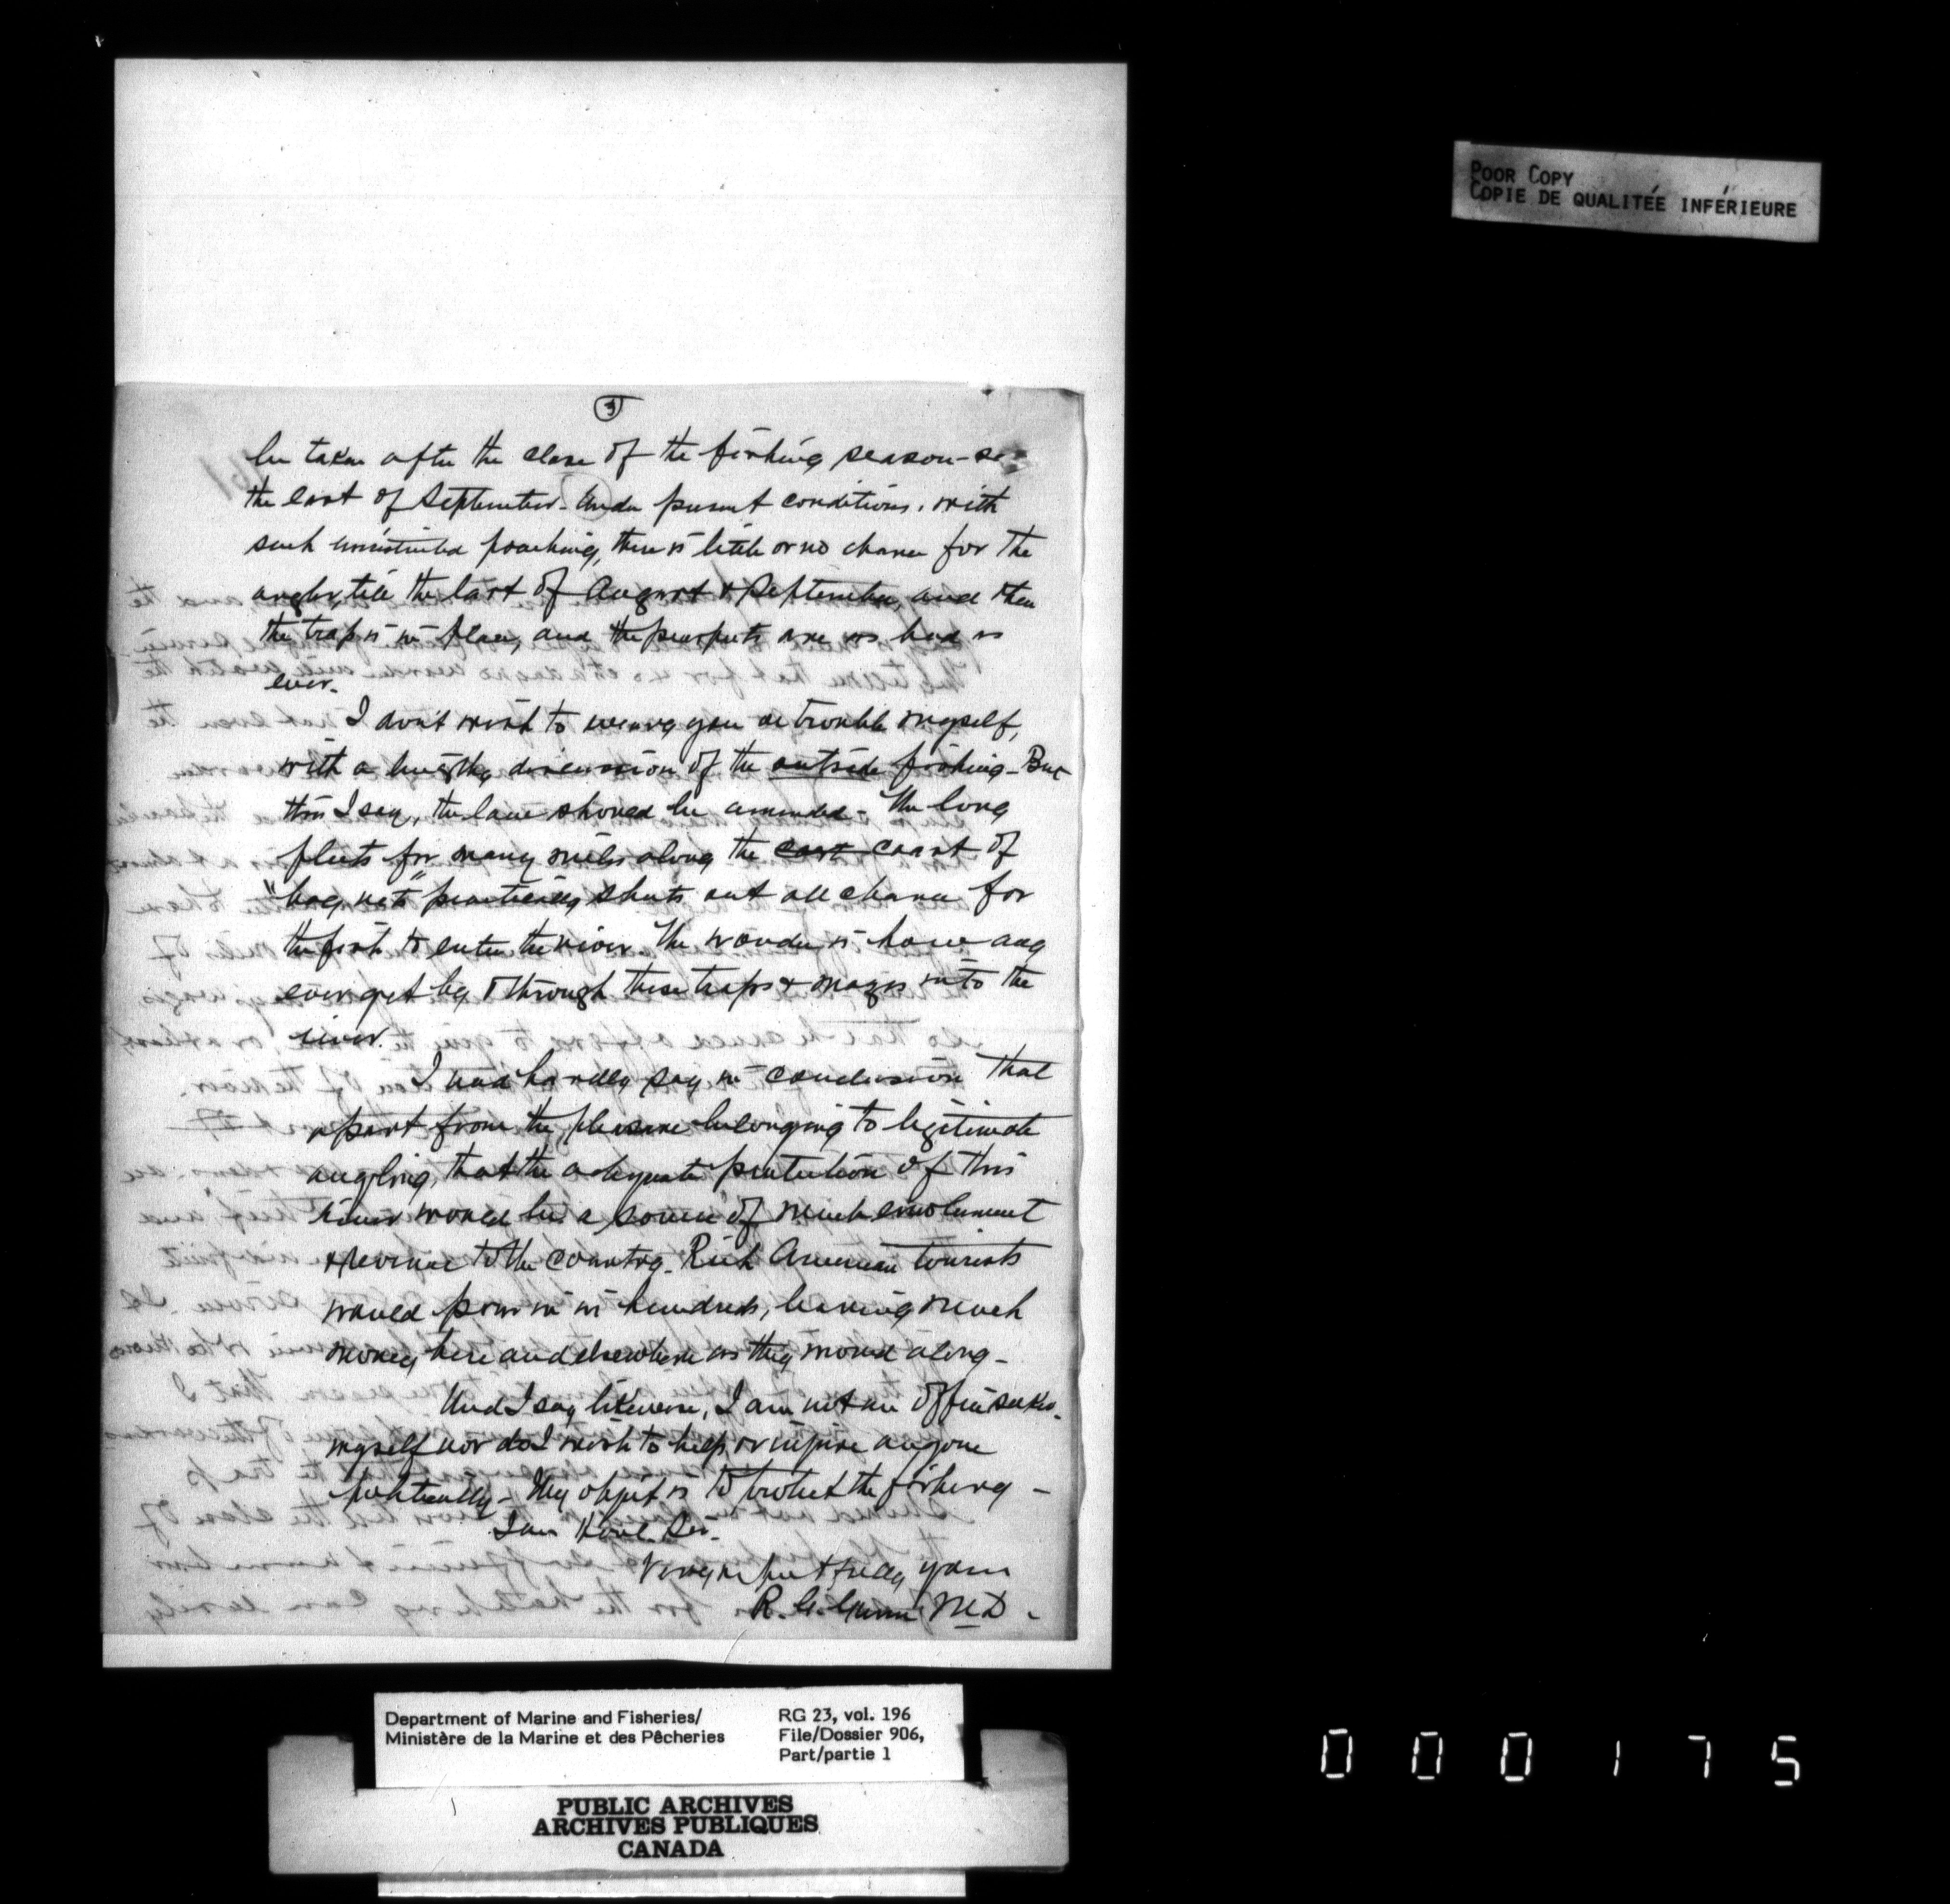 3
be taken after the close of the fishing season - say
the last of September - Under present conditions, with
such unrestricted poaching, there is little or no chance for the
angler, till the last of August & September, and then
the trap is in place, and the prospects are as bad as
ever.
I don't wish to weary you or trouble myself,
with a lengthy discussion of the outside fishing - But
this I say, the law should be amended - The long
fleets for many miles along the east coast of
"bag nets" practically shuts out all chance for
the fish to enter the river. The wonder is how any
ever get by & through these traps & mazes into the
river.
I need hardly say in conclusion that
apart from the pleasure belonging to legitimate
angling, that the adequate protection of this
river would be a source of much emolument
& revenue to the country. Rich American tourists
would pour in in hundreds, leaving much
money here and elsewhere as they moved along -
And I say likewise, I am not an office seeker
myself nor do I wish to help or injure anyone
politically - My object is to protect the fishing -
I am Hon'l Sir.
Very respectfully yours
R. G. MD -
POOR COPY
COPIE DE QUALITÉE INFÉRIEURE
Department of Marine and Fisheries/
Ministère de la Marine et des Pêcheries
RG 23, vol. 196
File/Dossier 906,
Part/partie 1
PUBLIC ARCHIVES
ARCHIVES PUBLIQUES
CANADA
000175